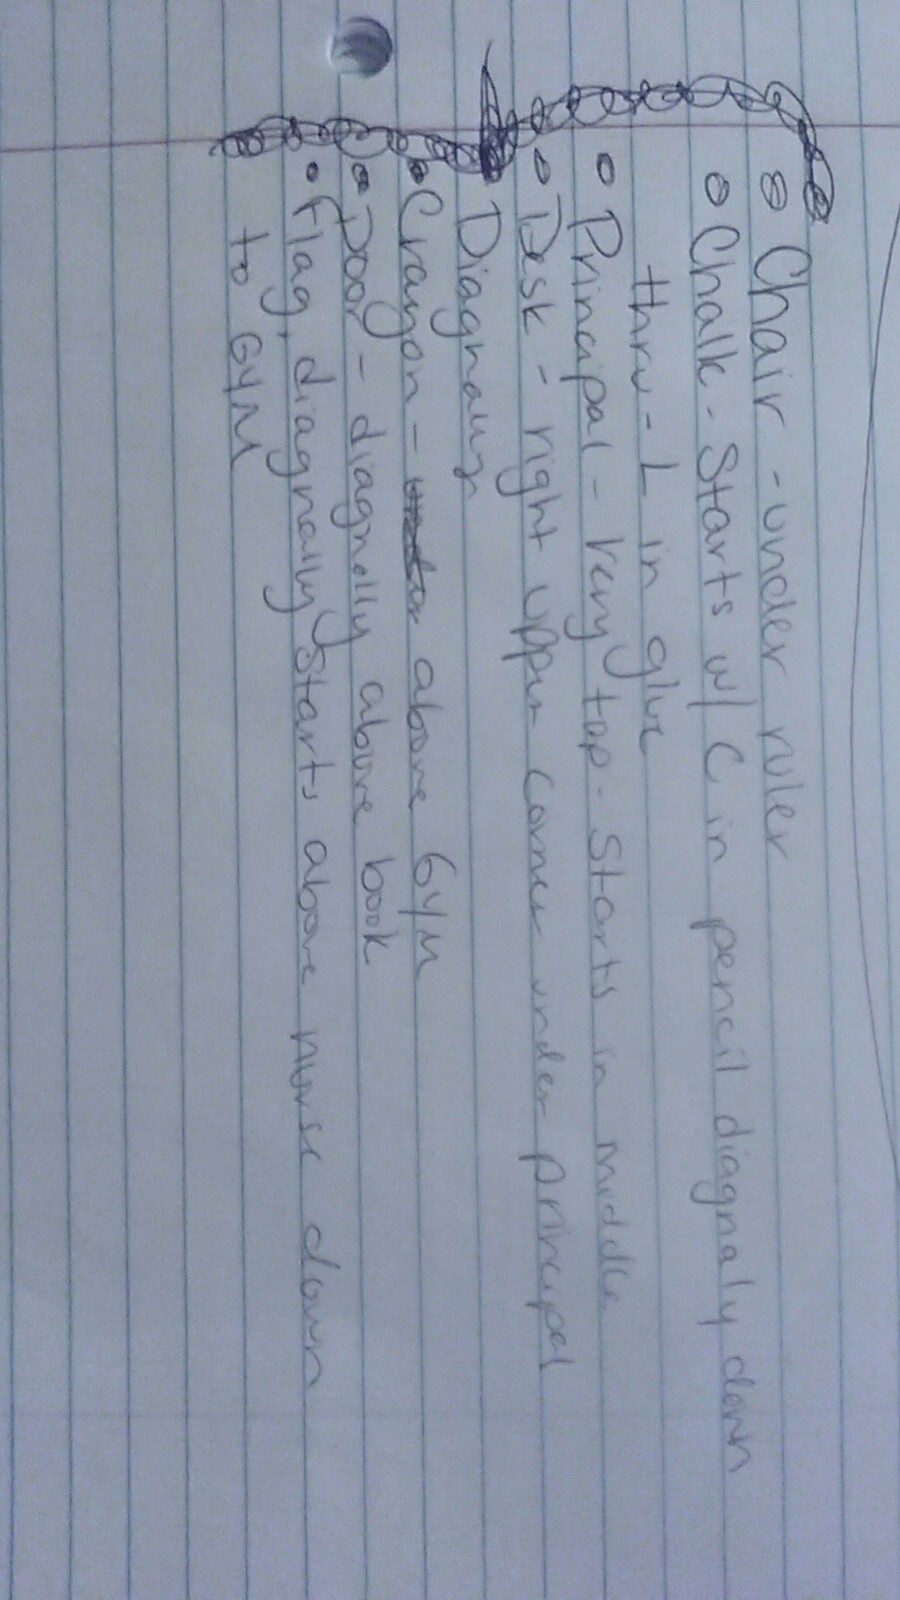 Chair - under ruler
Chalk - Starts w/ C in pencil diagnaly down
thru - L in glue
Principal - Very top - Starts in middle
Desk - right upper corner under principal
Diagnaly
Crayon - above GYM
Door - diagnolly above book
Flag, diagnally starts above nurse down
to GYM